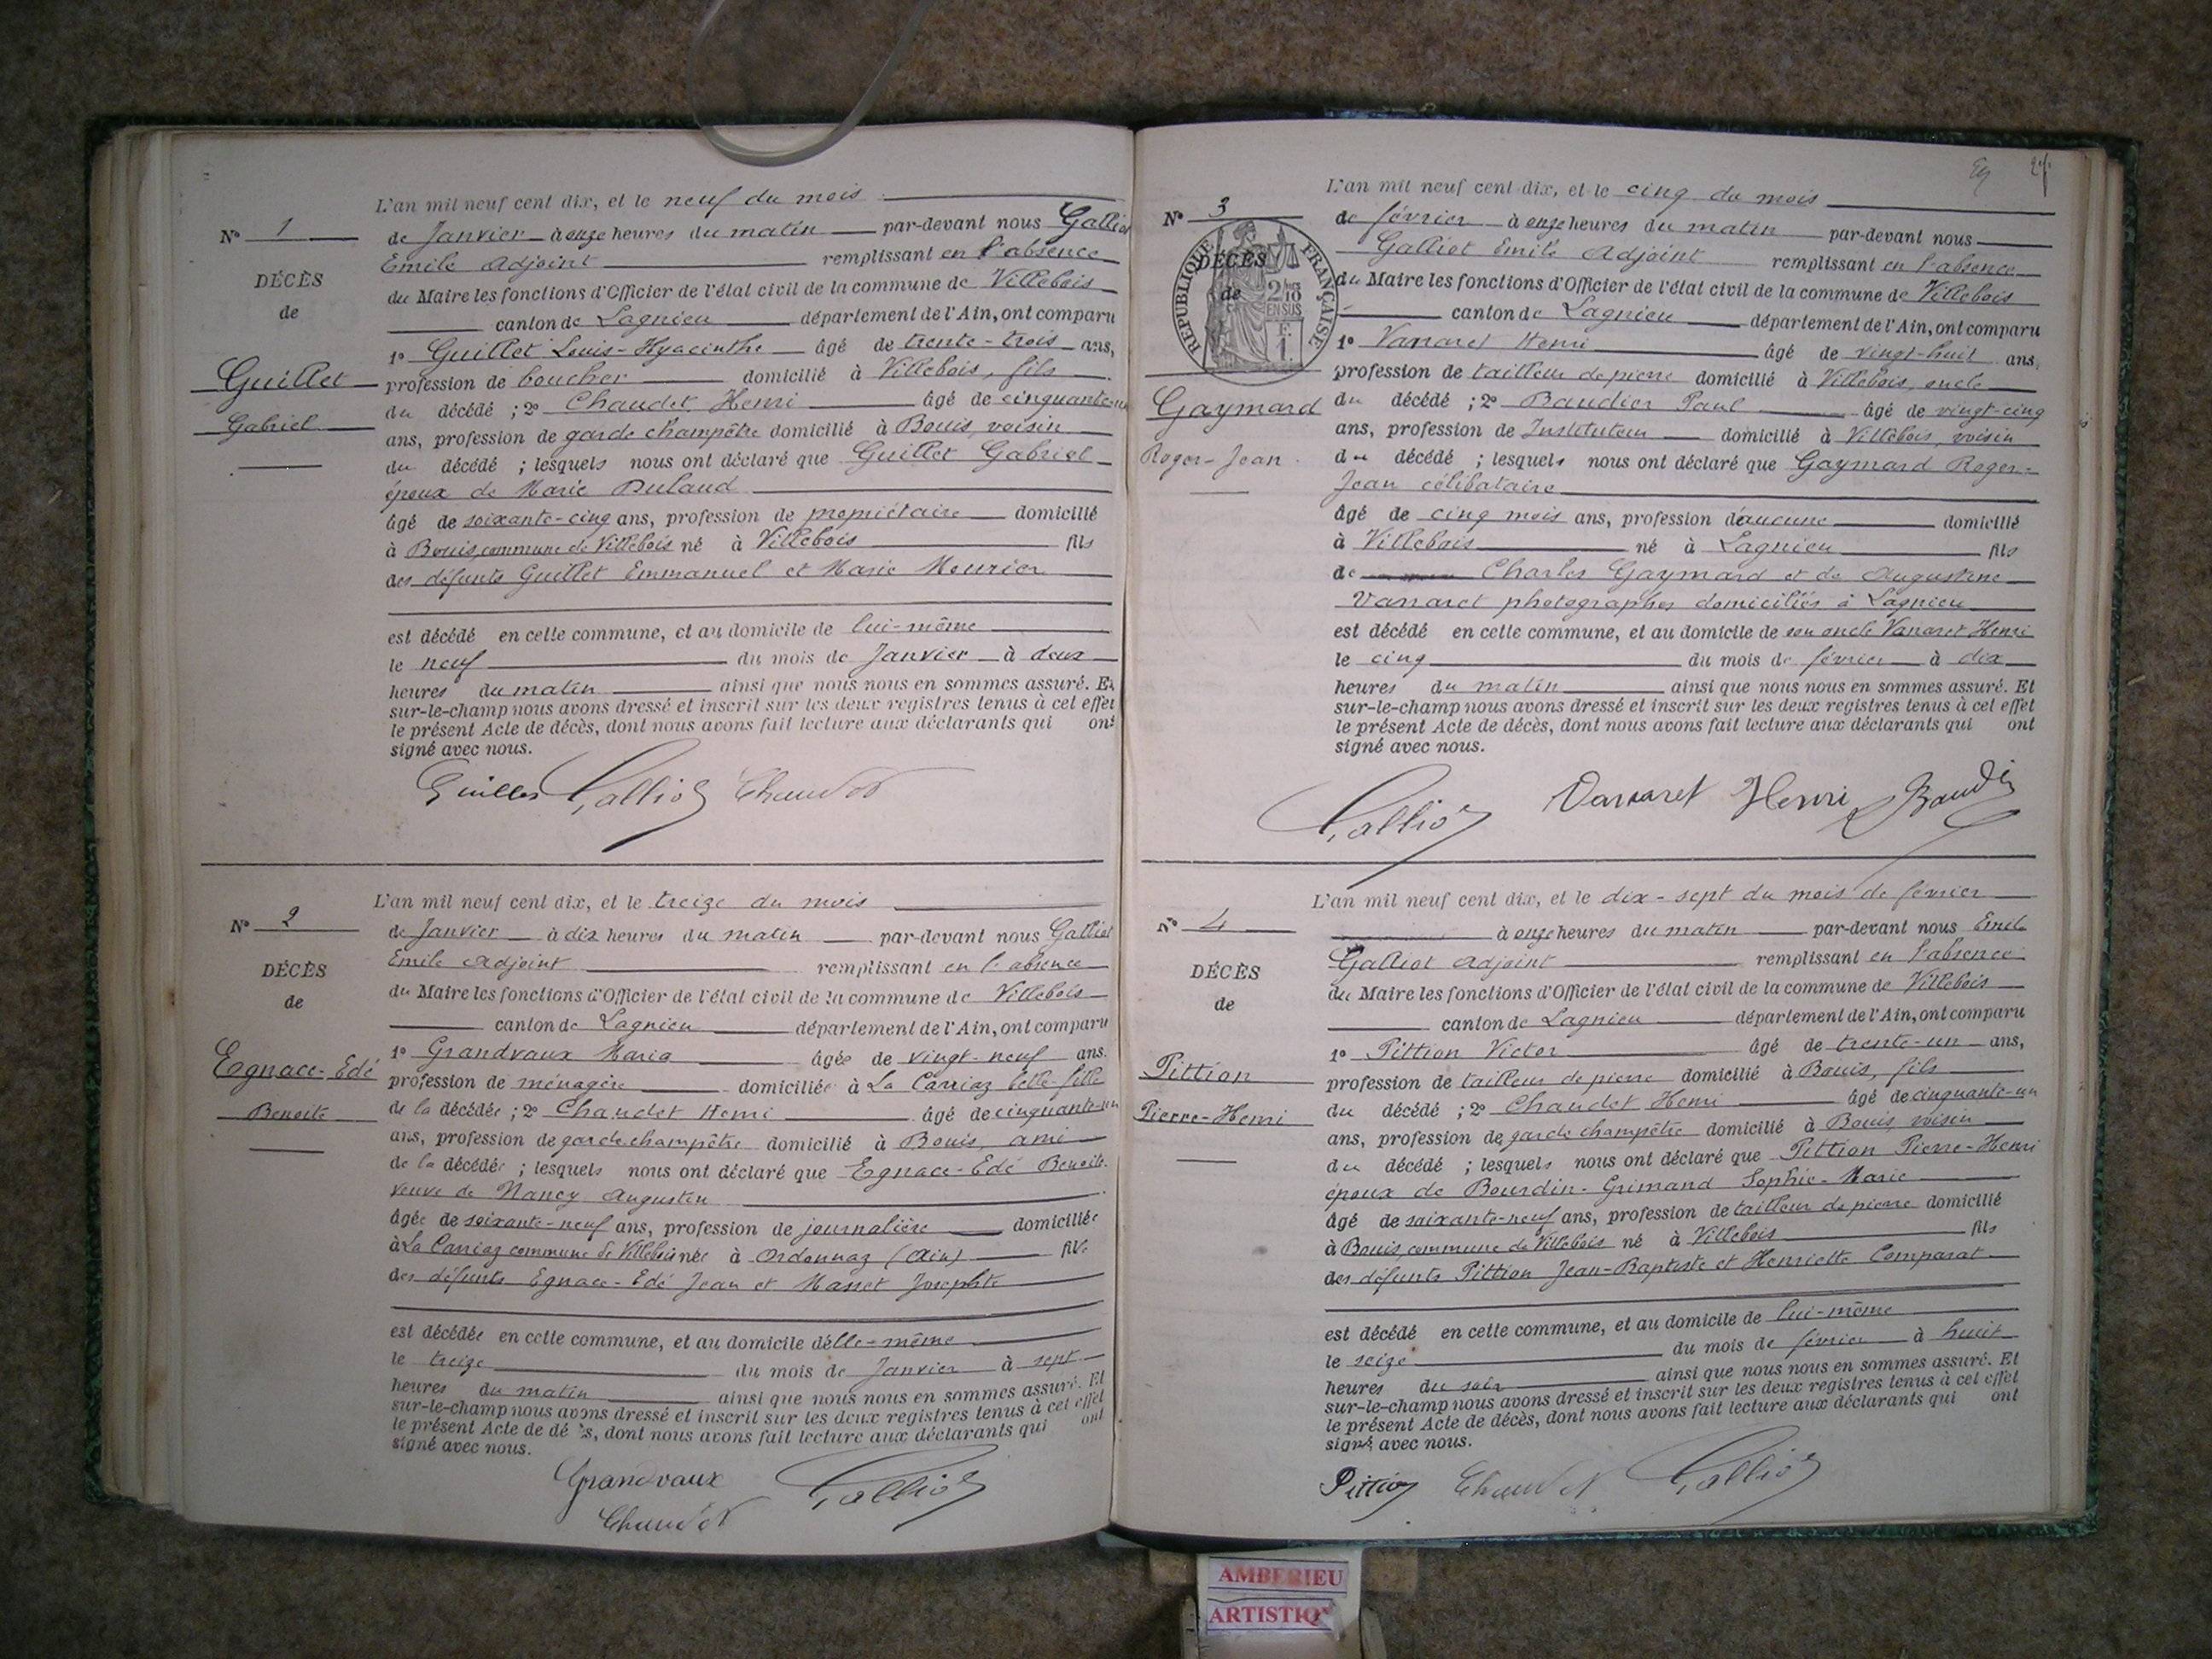 L'an mil neuf cent dix, et le neuf du mois
N° 1
de Janvier à onze heures du matin par-devant nous Galliot
Emile Adjoint remplissant en l'absence
DÉCÈS
du Maire les fonctions d'Officier de l'état civil de la commune de Villebois
de
canton de Lagnieu département de l'Ain, ont comparu
1° Guillet Louis-Hyacinthe âgé de trente-trois ans,
Guillet
profession de boucher domicilié à Villebois, fils
du décédé ; 2° Chaudet Henri âgé de cinquante-un
Gabriel
ans, profession de garde champêtre domicilié à Bouis, voisin
du décédé ; lesquels nous ont déclaré que Guillet Gabriel
époux de Marie Dulaud
âgé de soixante-cinq ans, profession de propriétaire domicilié
à Bouis, commune de Villebois né à Villebois fils
des défunts Guillet Emmanuel et Marie Meurier
est décédé en cette commune, et au domicile de lui-même
le neuf du mois de Janvier à deux
heures du matin ainsi que nous nous en sommes assuré. Et
sur-le-champ nous avons dressé et inscrit sur les deux registres tenus à cet effet
le présent Acte de décès, dont nous avons fait lecture aux déclarants qui ont
signé avec nous.
Guillet Galliot Chaudet
L'an mil neuf cent dix, et le treize du mois
N° 2
de Janvier à dix heures du matin par-devant nous Galliot
Emile Adjoint remplissant en l'absence
DÉCÈS
du Maire les fonctions d'Officier de l'état civil de la commune de Villebois
de
canton de Lagnieu département de l'Ain, ont comparu
1° Grandvaux Maria âgée de vingt-neuf ans.
Egnace-Edé
profession de ménagère domiciliée à La Carriaz belle fille
Benoite
de la décédée ; 2° Chaudet Henri âgé de cinquante-un
ans, profession de garde champêtre domicilié à Bouis, ami
de la décédée ; lesquels nous ont déclaré que Egnace-Edé Benoite
veuve de Nancy Augustin
âgée de soixante-neuf ans, profession de journalière domiciliée
à La Carriaz commune de Villebois née à Ordonnaz (Ain) fille
des défunts Egnace-Edé Jean et Masset Josephte
est décédée en cette commune, et au domicile d'elle-même
le treize du mois de Janvier à sept
heures du matin ainsi que nous nous en sommes assuré. Et
sur-le-champ nous avons dressé et inscrit sur les deux registres tenus à cet effet
le présent Acte de dé s, dont nous avons fait lecture aux déclarants qui ont
signé avec nous.
Grandvaux Galliot
Chaudet
27
L'an mil neuf cent dix, et le cinq du mois
N° 3
de février à onze heures du matin par-devant nous
Galliot Emile Adjoint remplissant en l'absence
RÉPUBLIQUE FRANÇAISE
2/10 EN SUS
DÉCÈS
du Maire les fonctions d'Officier de l'état civil de la commune de Villebois
de
canton de Lagnieu département de l'Ain, ont comparu
1° Vanaret Henri âgé de vingt-huit ans,
profession de tailleur de pierre domicilié à Villebois, oncle
Gaymard
du décédé ; 2° Baudier Paul âgé de vingt-cinq
ans, profession de Instituteur domicilié à Villebois, voisin
Roger-Jean
du décédé ; lesquels nous ont déclaré que Gaymard Roger-
Jean célibataire
âgé de cinq mois ans, profession d'aucune domicilié
à Villebois né à Lagnieu fils
de Charles Gaymard et de Augustine
Vanaret photographes domiciliés à Lagnieu
est décédé en cette commune, et au domicile de son oncle Vanaret Henri
le cinq du mois de février à dix
heures du matin ainsi que nous nous en sommes assuré. Et
sur-le-champ nous avons dressé et inscrit sur les deux registres tenus à cet effet
le présent Acte de décès, dont nous avons fait lecture aux déclarants qui ont
signé avec nous.
Galliot Vanaret Henri Baudier
L'an mil neuf cent dix, et le dix-sept du mois de février
N° 4
à onze heures du matin par-devant nous Emile
Galliot Adjoint remplissant en l'absence
DÉCÈS
du Maire les fonctions d'Officier de l'état civil de la commune de Villebois
de
canton de Lagnieu département de l'Ain, ont comparu
1° Pittion Victor âgé de trente-un ans,
Pittion
profession de tailleur de pierre domicilié à Bouis, fils
Pierre-Henri
du décédé ; 2° Chaudet Henri âgé de cinquante-un
ans, profession de garde champêtre domicilié à Bouis, voisin
du décédé ; lesquels nous ont déclaré que Pittion Pierre-Henri
époux de Bourdin-Grimand Sophie-Marie
âgé de soixante-neuf ans, profession de tailleur de pierre domicilié
à Bouis, commune de Villebois né à Villebois fils
des défunts Pittion Jean-Baptiste et Henriette Comparat
est décédé en cette commune, et au domicile de lui-même
le seize du mois de février à huit
heures du soir ainsi que nous nous en sommes assuré. Et
sur-le-champ nous avons dressé et inscrit sur les deux registres tenus à cet effet
le présent Acte de décès, dont nous avons fait lecture aux déclarants qui ont
signé avec nous.
Pittion Chaudet Galliot
AMBERIEU
ARTISTIQ